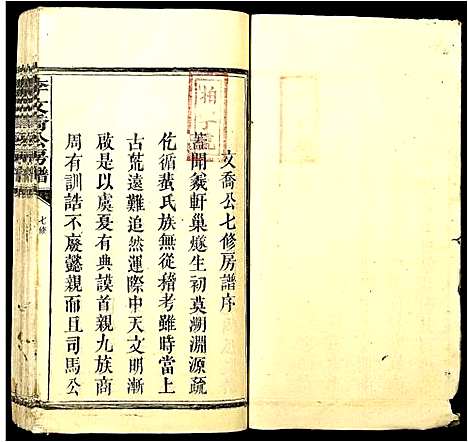 文喬公七修房譜序
蓋聞羲軒巢燧生初莫溯淵源疏
仡循蜚氏族無從稽考雖時當上
古荒遠難追然運際中天文明漸
啟是以虞夏有典謨首親九族商
周有訓誥不廢懿親而且司馬公
公房譜
七修